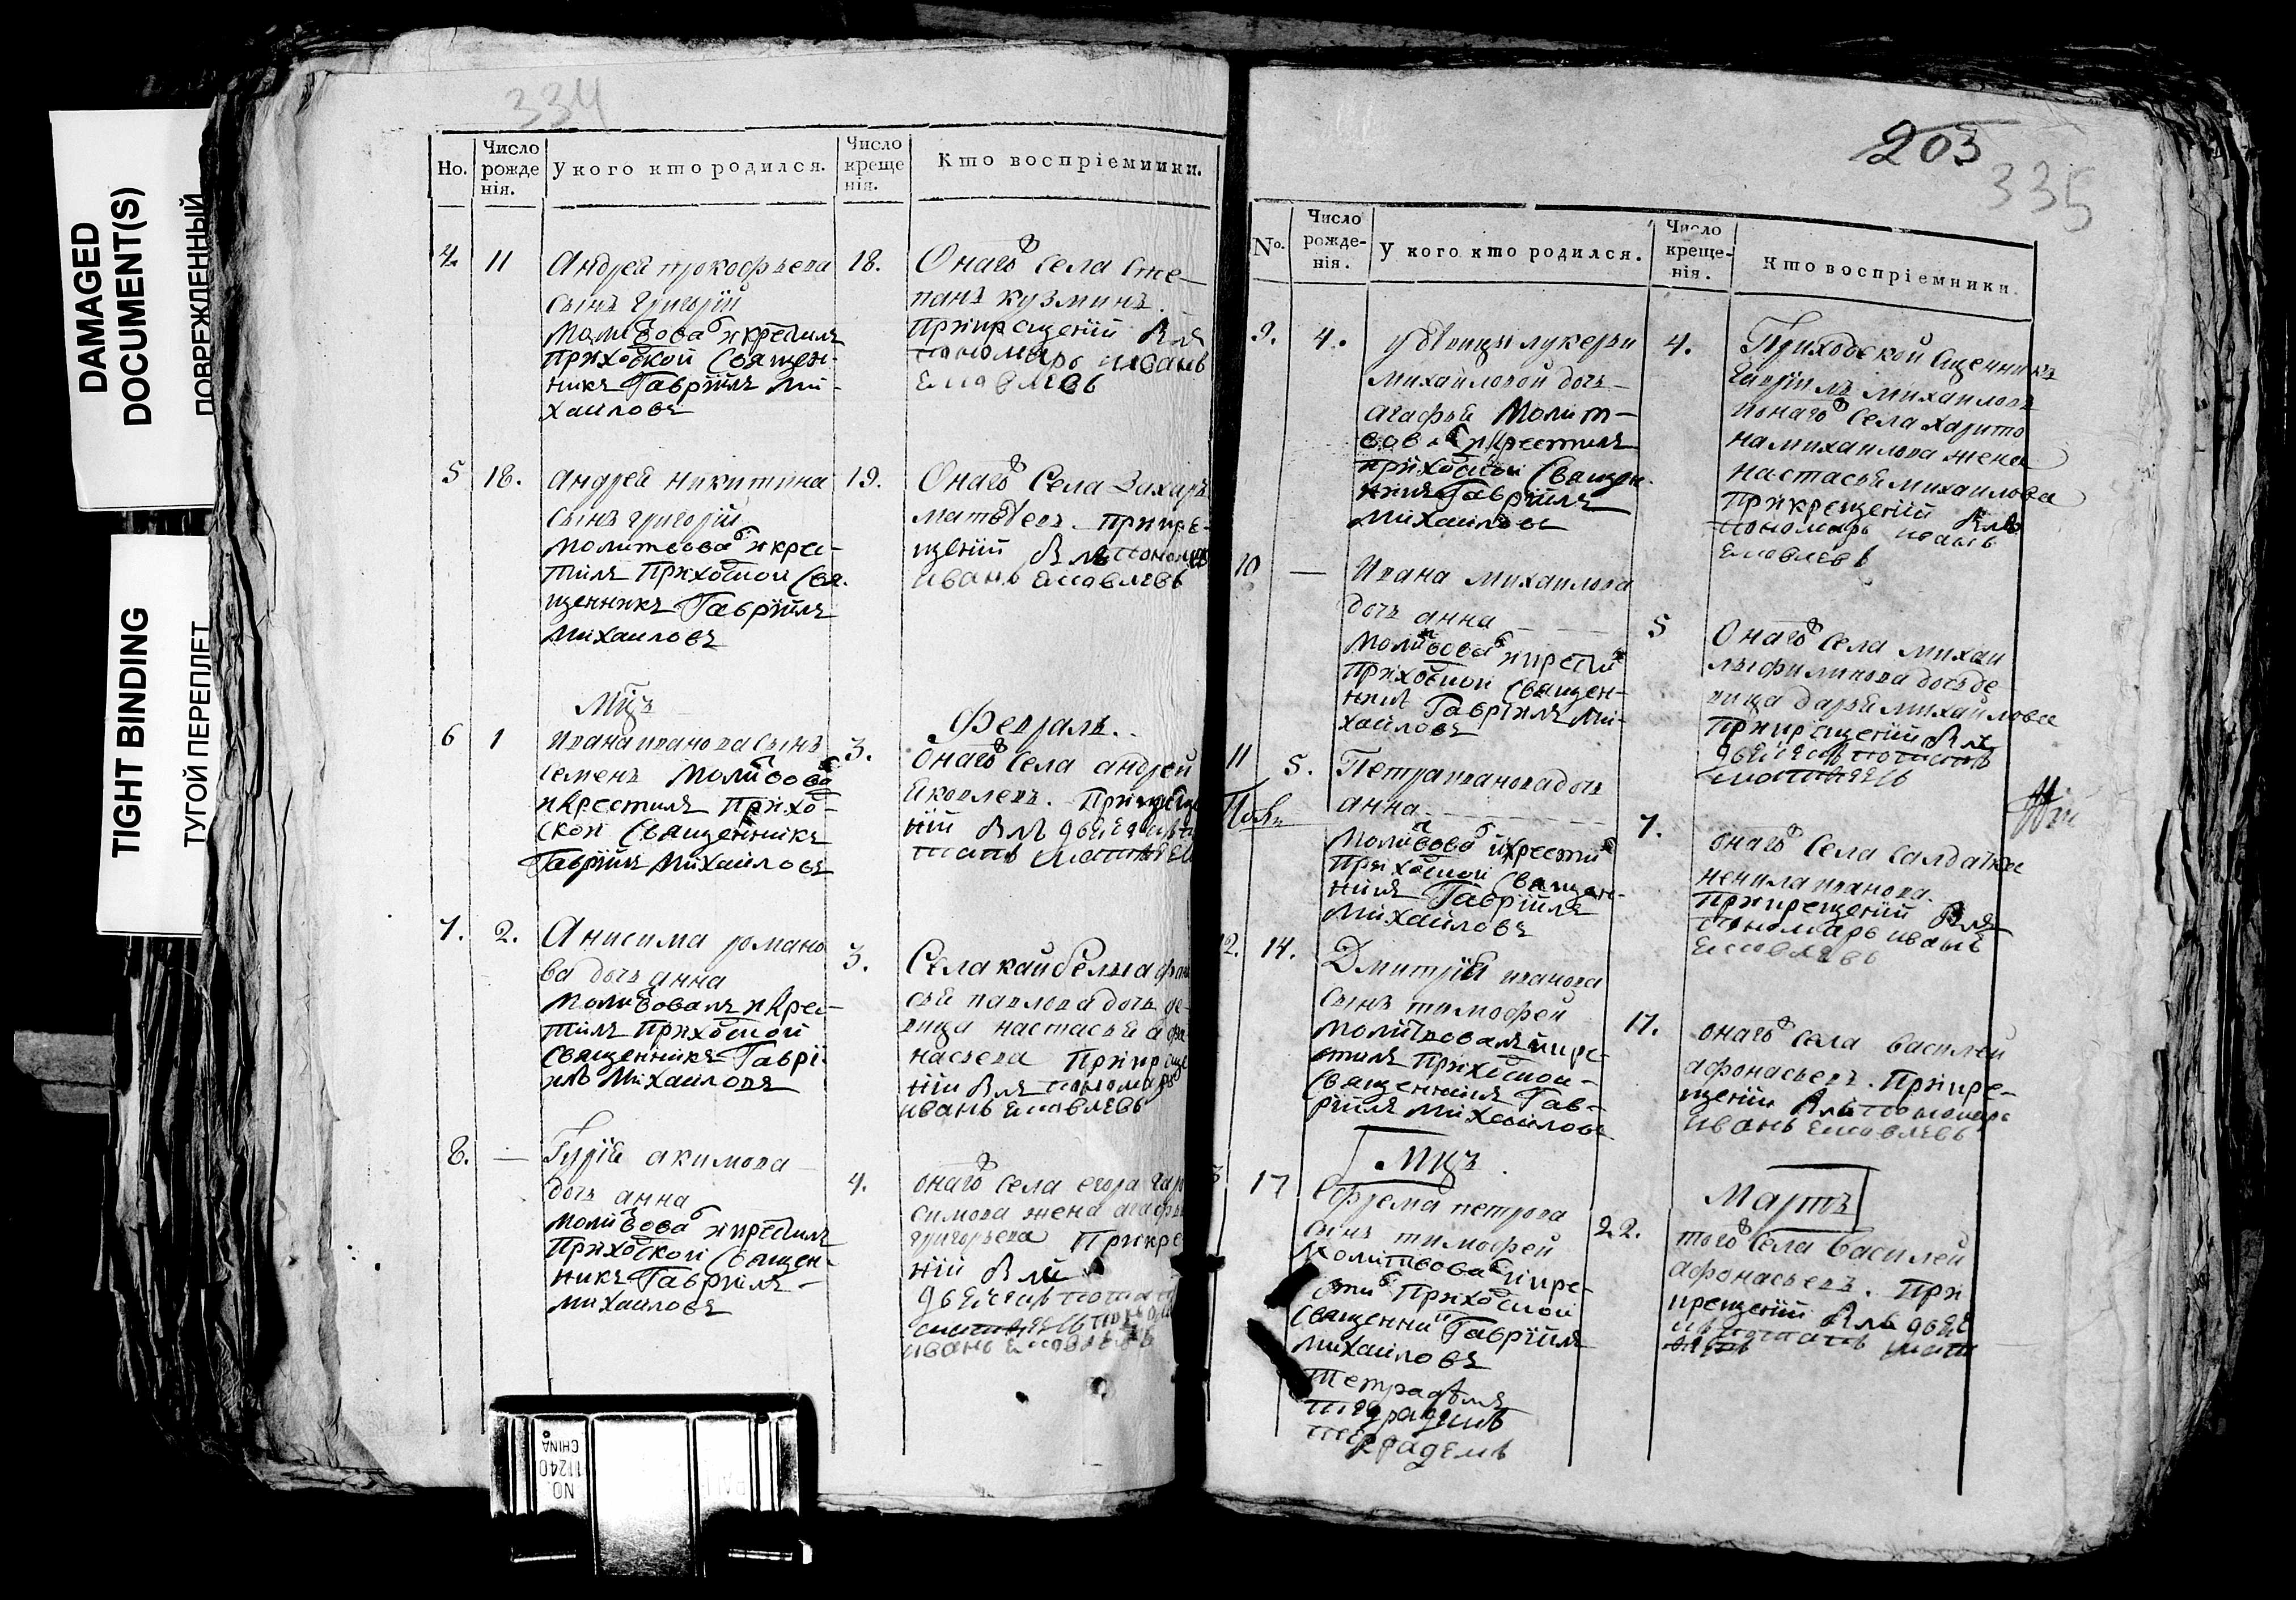 DAMAGED
DOCUMENT(S)
ПОВРЕЖДЕННЫЙ
TIGHT BINDING
ТУГОЙ ПЕРЕПЛЕТ
334
Но.
Число рожденія.
У кого кто родился.
Число крещенія.
Кто воспріемники.
4. 11
Андрей прокофьева
сынъ григорїй
молитвовалъ и крестилъ
приходской Священ-
никъ Гаврїилъ Ми-
хаиловъ
18.
Онаго села Сте-
панъ кузминъ.
При крещенїи былъ
пономарь иванъ
Яковлевъ
5 18.
андрей никитина
сынъ григорїй
молитвовалъ и крес-
тилъ Приходской Свя-
щенникъ Гаврїилъ
михаиловъ
19.
Онаго Села Захаръ
матвеевъ. при кре-
щенїи былъ пономарь
иванъ Яковлевъ
Мцъ
Февраль.
6 1
Ивана иванова сынъ
семенъ молитвовалъ
и крестилъ Прихо-
ской Священникъ
Гаврїилъ Михаиловъ
3.
онаго села андрей
Яковлевъ.
7. 2.
Анисима романо
ва дочь анна
молитвовалъ и крес-
тилъ Приходской
Священникъ Гаврї-
илъ Михаиловъ
3.
Села кайбелы
павлова дочь де-
вица настасья афа
насьева При креще
нїи былъ пономарь
иванъ Яковлевъ
8. —
Гурїй акимова
дочь анна
молитвовалъ и крестилъ
Приходской Священ-
никъ Гаврїилъ
михаиловъ
4.
онаго села егора
симова жена
григорьева При кре
нїи былъ
иванъ Яковлевъ
203
335
No.
Число рожде-нія.
У кого кто родился.
Число креще-нія.
Кто воспріемники.
9. 4.
у двицы лукерьи
михаиловой дочь
агафья Молит-
вовалъ и крестилъ
приходской Священ-
никъ Гаврїилъ
Михаиловъ
4.
Приходской Сщенникъ
Гаврїилъ михаиловъ
и онаго села харито
на михаилова жена
настасья михаилова
При крещенїи былъ
пономарь иванъ
Яковлевъ
10 —
Ивана михаилова
дочь анна
Молитвовалъ и крестилъ
Приходской Священ-
никъ Гаврїилъ Ми-
хаиловъ
5
Онаго села михаи
лы филипова дочь де
вица дарья михаилова
При крещенїи былъ
11 5.
Петра иванова дочь
анна
Молитвовалъ и крестилъ
Приходской Священ-
никъ Гаврїилъ
Михаиловъ
7.
онаго села салдатка
ненила иванова.
При крещенїи былъ
пономарь иванъ
Яковлевъ
2. 14.
Дмитрїй иванова
сынъ тимофей
молитвовалъ и кре-
стилъ Приходской
Священникъ Гав-
рїилъ Михаиловъ
17.
онаго села василей
афонасьевъ. При кре-
щенїи былъ пономарь
иванъ Яковлевъ
Мцъ.
Мартъ
3 17
Ефрема петрова
сынъ тимофей
молитвовалъ и кре-
стилъ Приходской
Священникъ Гаврїилъ
михаиловъ
22.
того села Василей
афонасьевъ. При
крещенїи былъ
NO.
11240
CHINA